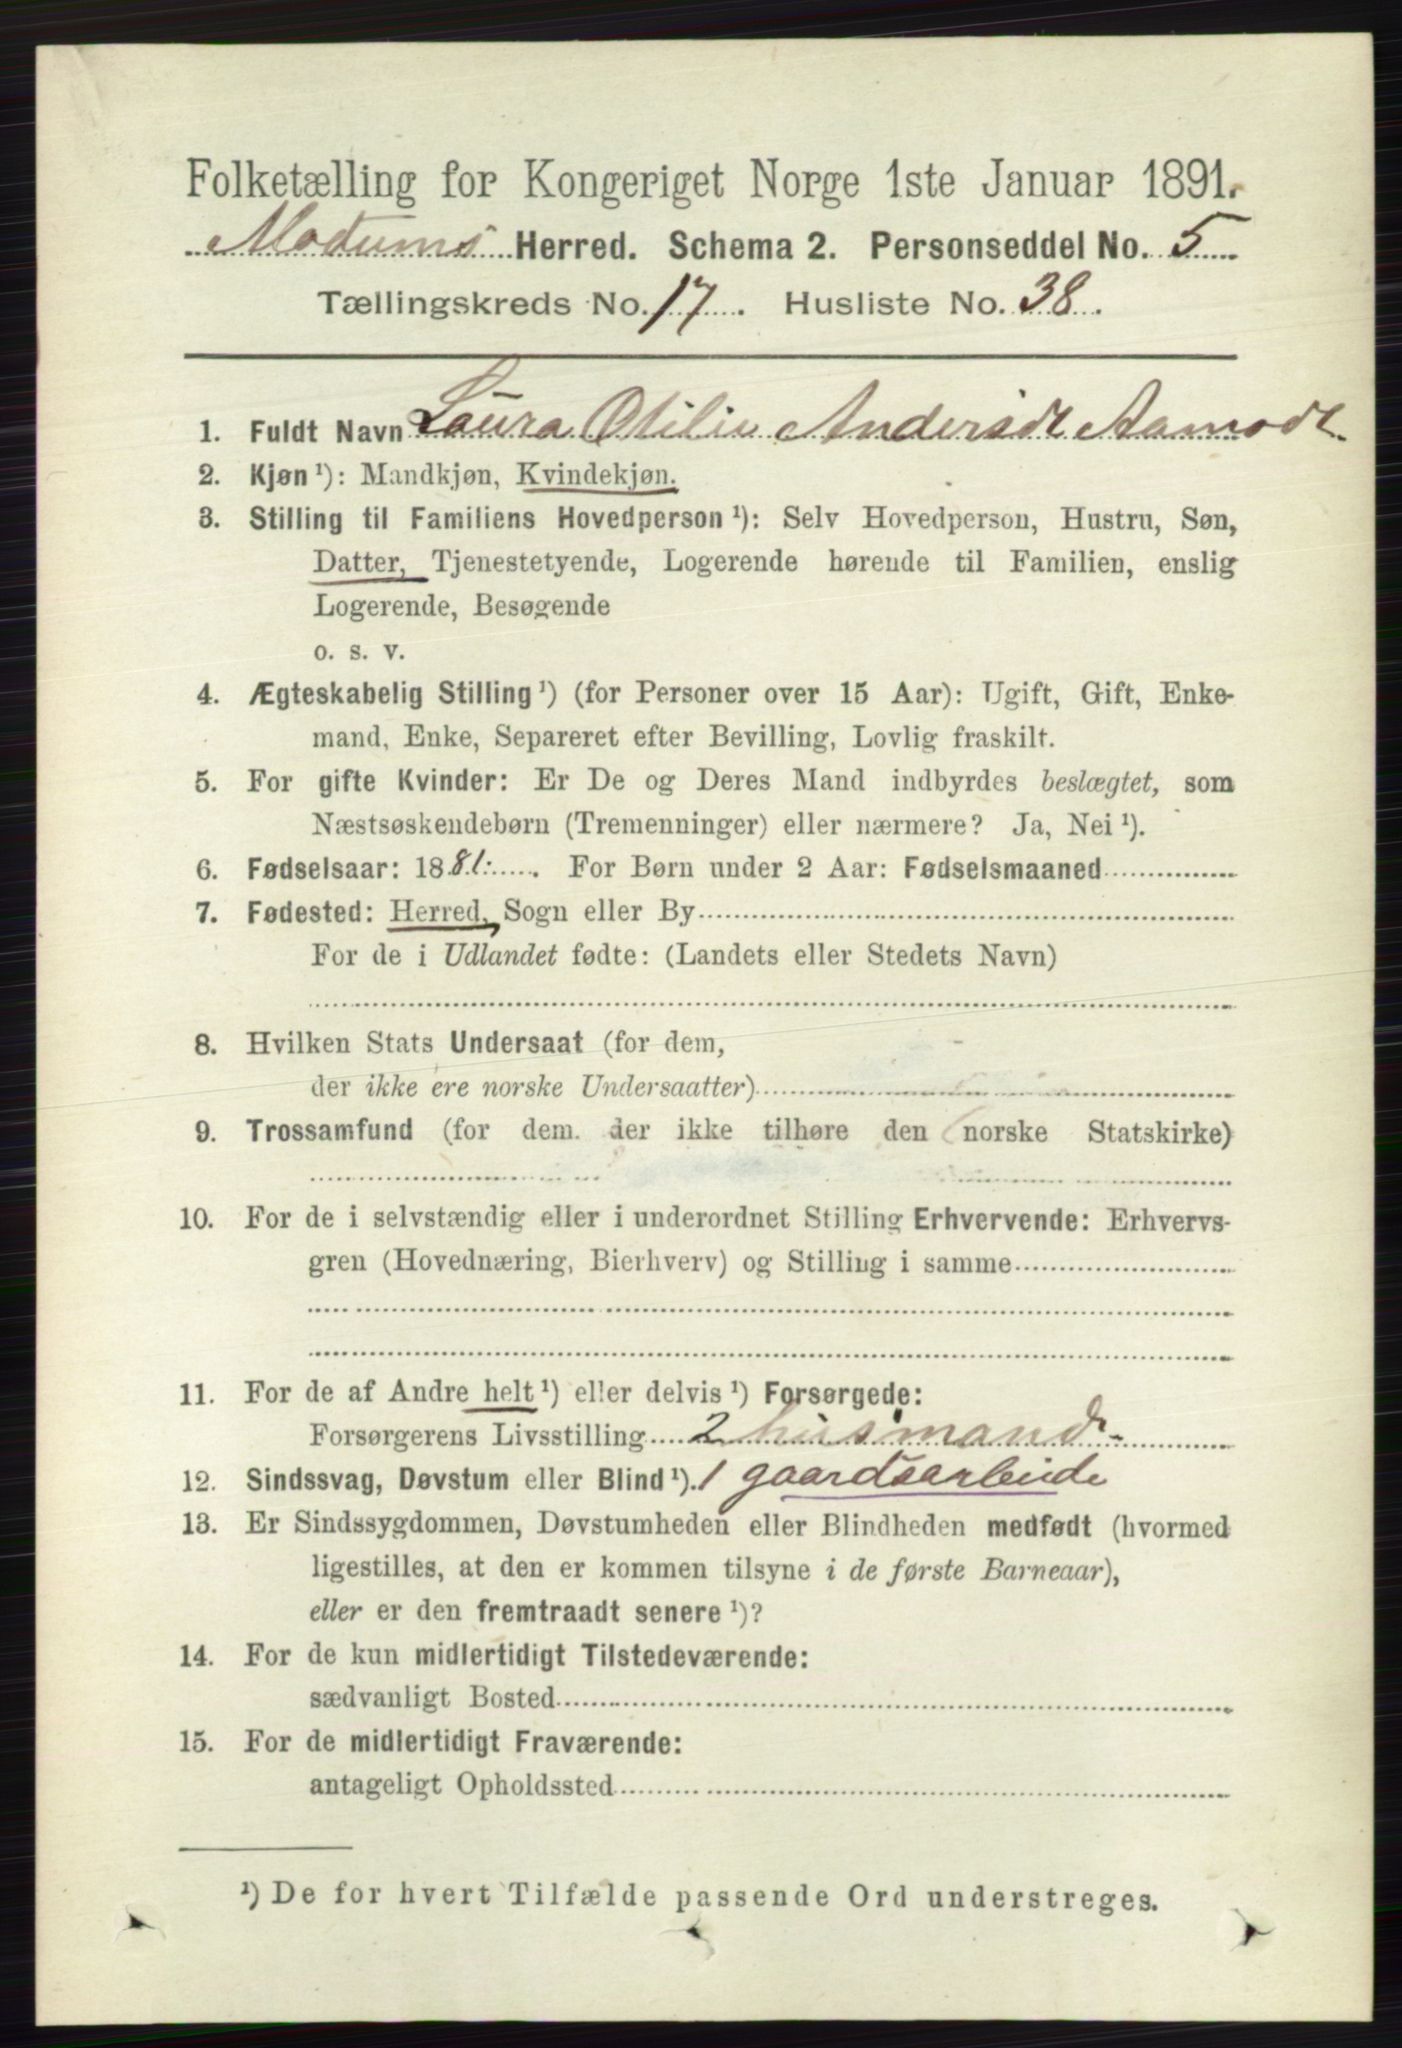 Folketælling for Kongeriget Norge 1ste Januar 1891.
Modums Herred. Schema 2. Personseddel No. 5
Tællingskreds No. 17. Husliste No. 38.
1. Fuldt Navn Laura Otilie Andersdt Aamodt.
2. Kjøn ¹): Mandkjøn, Kvindekjøn.
3. Stilling til Familiens Hovedperson ¹): Selv Hovedperson, Hustru, Søn,
Datter, Tjenestetyende, Logerende hørende til Familien, enslig
Logerende, Besøgende
o. s. v.
4. Ægteskabelig Stilling ¹) (for Personer over 15 Aar): Ugift, Gift, Enke-
mand, Enke, Separeret efter Bevilling, Lovlig fraskilt.
5. For gifte Kvinder: Er De og Deres Mand indbyrdes beslægtet, som
Næstsøskendebørn (Tremenninger) eller nærmere? Ja, Nei ¹).
6. Fødselsaar: 1881. For Børn under 2 Aar: Fødselsmaaned
7. Fødested: Herred, Sogn eller By
For de i Udlandet fødte: (Landets eller Stedets Navn)
8. Hvilken Stats Undersaat (for dem,
der ikke ere norske Undersaatter)
9. Trossamfund (for dem. der ikke tilhøre den norske Statskirke)
10. For de i selvstændig eller i underordnet Stilling Erhvervende: Erhvervs-
gren (Hovednæring, Bierhverv) og Stilling i samme
11. For de af Andre helt ¹) eller delvis ¹) Forsørgede:
Forsørgerens Livsstilling 2 husmand-
12. Sindssvag, Døvstum eller Blind ¹). 1 gaardsarbeide
13. Er Sindssygdommen, Døvstumheden eller Blindheden medfødt (hvormed
ligestilles, at den er kommen tilsyne i de første Barneaar),
eller er den fremtraadt senere ¹)?
14. For de kun midlertidigt Tilstedeværende:
sædvanligt Bosted
15. For de midlertidigt Fraværende:
antageligt Opholdssted
¹) De for hvert Tilfælde passende Ord understreges.